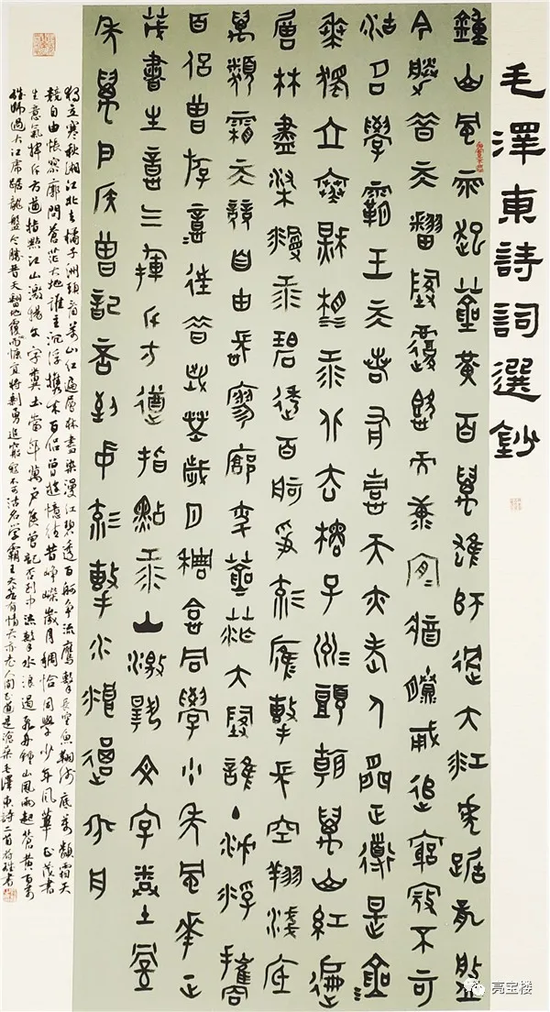 毛澤東詩詞選鈔
鍾山風雨起蒼黃百萬雄師過大江虎踞龍盤
今勝昔天翻地覆慨而慷宜將剩勇追窮寇不可
沽名學霸王天若有情天亦老人間正道是滄
桑獨立寒秋湘江北去橘子洲頭看萬山紅遍
層林盡染漫江碧透百舸爭流鷹擊長空翔淺底
萬類霜天競自由悵寥廓問蒼茫大地誰主沉浮攜
百侶曾遊憶往昔崢嶸歲月稠恰同學少年風華正
茂書生意氣揮斥方遒指點江山激揚文字糞土當
年萬戶侯曾記否到中流擊水浪遏飛舟
獨立寒秋湘江北去橘子洲頭看萬山紅遍層林盡染漫江碧透百舸爭流鷹擊長空魚翔淺底萬類霜天
競自由悵寥廓問蒼茫大地誰主沉浮攜來百侶曾遊憶往昔崢嶸歲月稠恰同學少年風華正茂書
生意氣揮斥方遒指點江山激揚文字糞土當年萬戶侯曾記否到中流擊水浪遏飛舟鍾山風雨起蒼黃百萬
雄師過大江虎踞龍盤今勝昔天翻地覆慨而慷宜將剩勇追窮寇不可沽名學霸王天若有情天亦老人間正道是滄桑毛澤東詩二首
亮宝楼